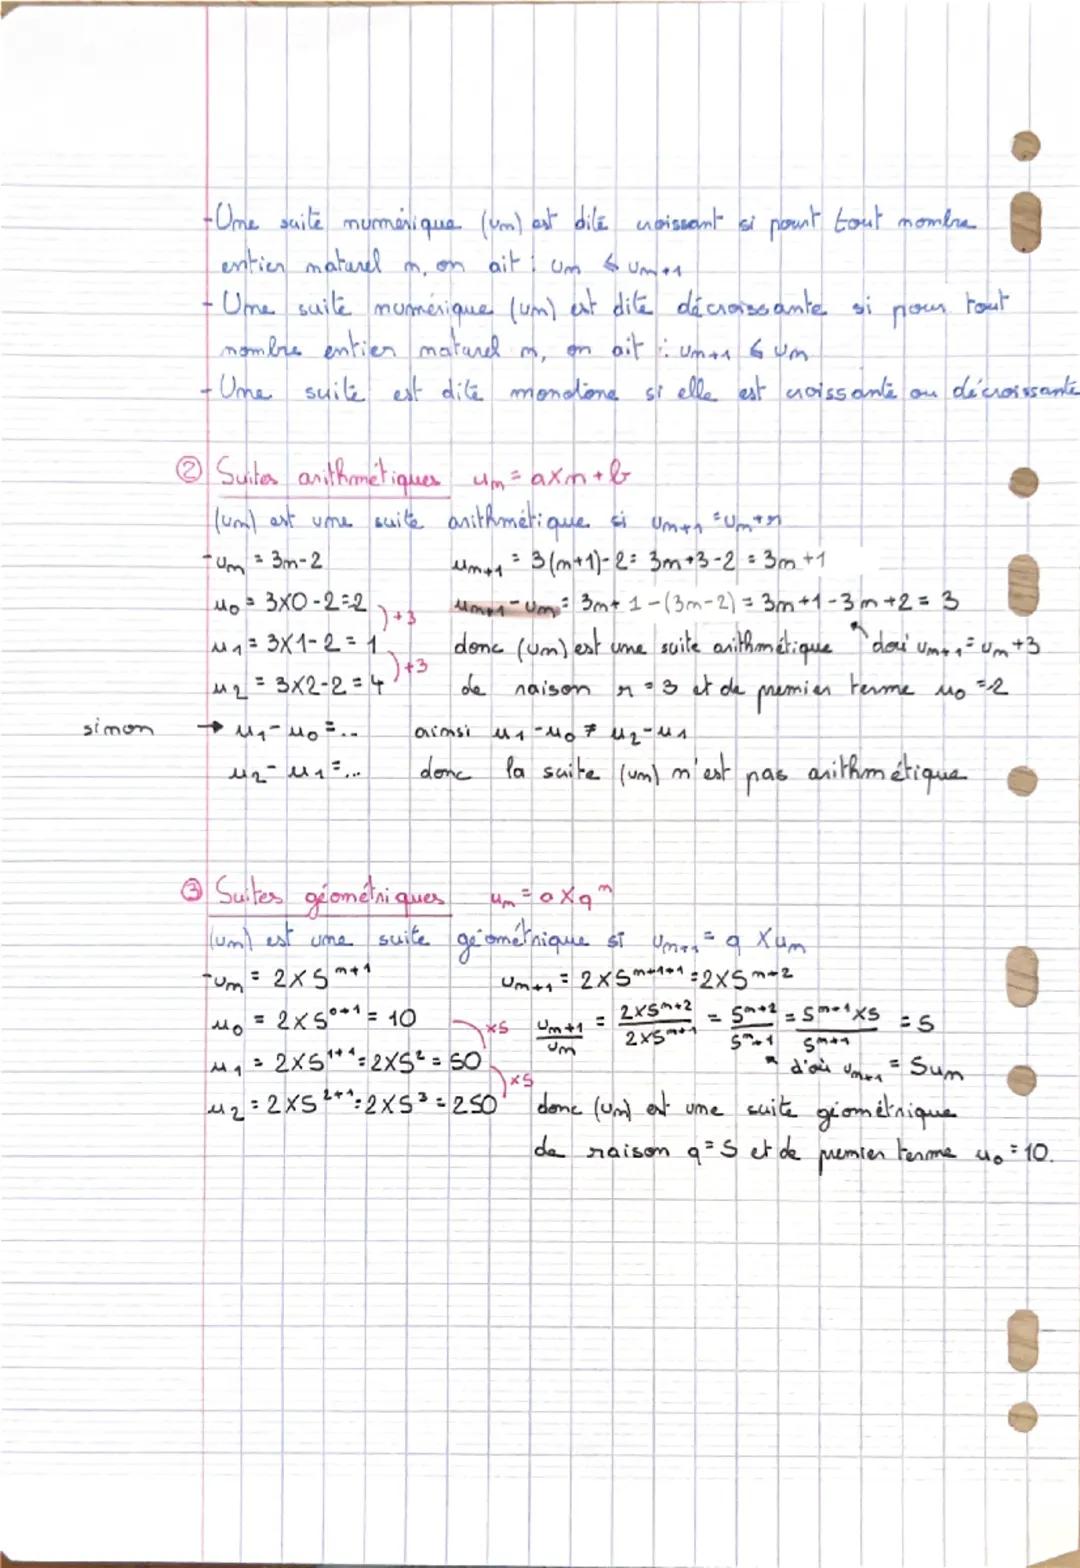 - Une suite numérique (un) est dite croissant si pourt tout nombre
entier naturel n, on ait : un ≤ un+1
- Une suite numérique (un) est dite décroissante si pour tout
nombre entier naturel n, on ait : un+1 ≤ un
- Une suite est dite monotone si elle est croissante ou décroissante
② Suites arithmétiques un = a×n+b
(un) est une suite arithmétique si un+1 = un+r
- un = 3n-2 un+1 = 3(n+1)-2 = 3n+3-2 = 3n+1
u0 = 3×0-2=-2 )+3 un+1-un = 3n+1-(3n-2) = 3n+1-3n+2 = 3
u1 = 3×1-2 = 1 )+3 donc (un) est une suite arithmétique d'où un+1 = un+3
u2 = 3×2-2 = 4 de raison r=3 et de premier terme u0=-2
sinon → u1-u0 = ... ainsi u1-u0 ≠ u2-u1
u2-u1 = ... donc la suite (un) n'est pas arithmétique
③ Suites géométriques un = a×q^n
(un) est une suite géométrique si un+1 = q × un
- un = 2×5^n+1 un+1 = 2×5^n+1+1 = 2×5^n+2
u0 = 2×5^0+1 = 10 ×5 un+1/un = 2×5^n+2/2×5^n+1 = 5^n+2/5^n+1 = 5^n+1×5/5^n+1 = 5
u1 = 2×5^1+1 = 2×5² = 50 ×5 d'où un+1 = 5un
u2 = 2×5^2+1 = 2×5³ = 250 donc (un) est une suite géométrique
de raison q=5 et de premier terme u0=10.